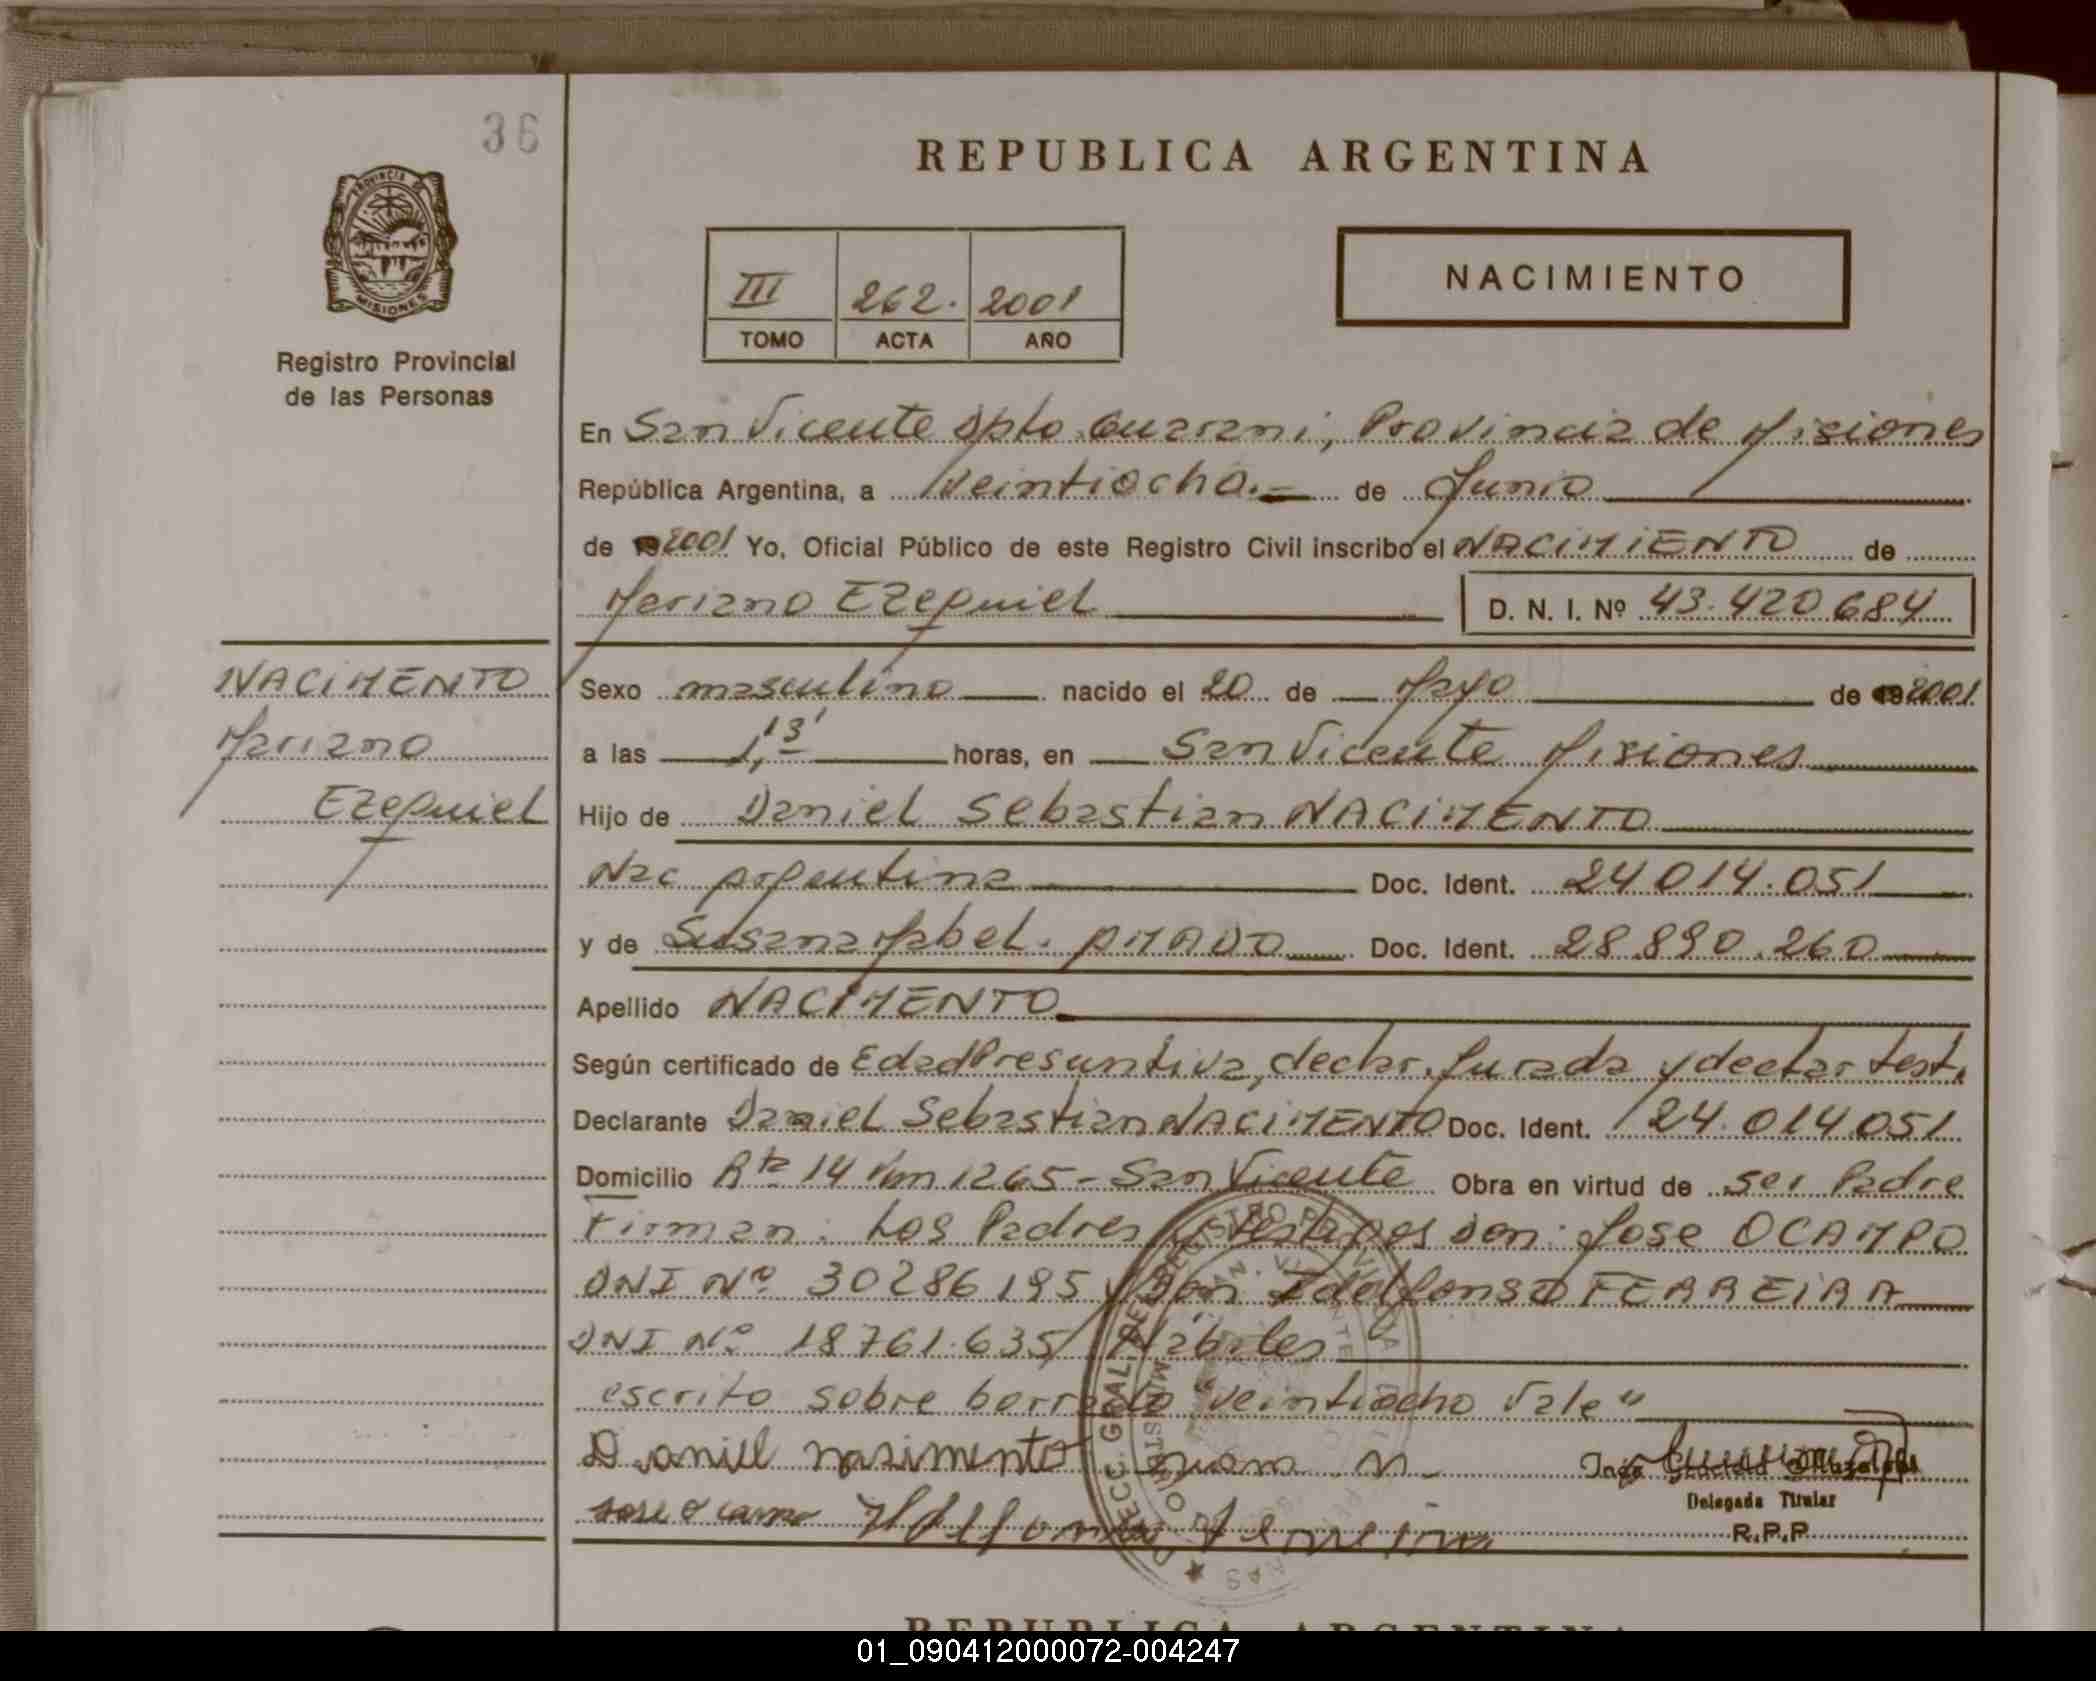 36
REPUBLICA ARGENTINA
PROVINCIA DE
MISIONES
III 262. 2001
TOMO ACTA AÑO
NACIMIENTO
Registro Provincial
de las Personas
En San Vicente Dpto. Guarani, Provincia de Misiones
República Argentina, a veintiocho.- de Junio
de 2001 Yo, Oficial Público de este Registro Civil inscribo el NACIMIENTO de
Mariano Ezequiel D. N. I. Nº 43.420.684
NACIMENTO
Mariano
Ezequiel
Sexo masculino nacido el 20 de Mayo de 2001
a las 1,13' horas, en San Vicente Misiones
Hijo de Daniel Sebastian NACIMENTO
Nac argentina Doc. Ident. 24.014.051
y de Susana Mabel. Doc. Ident. 28.890.260
Apellido NACIMENTO
Según certificado de Edad Presuntiva, declar. Jurada y declar test.
Declarante Daniel Sebastian NACIMENTO Doc. Ident. 24.014.051
Domicilio Rta 14 Km 1265 - San Vicente Obra en virtud de ser Padre
Firman: Los Padres y testigos don: Jose OCAMPO
DNI Nº 30286195 y don Idelfonso FERREIRA
DNI Nº 18761.635 Hábiles
escrito sobre borrado "veintiocho Vale"
Daniel nasimento
Delegada Titular
R.P.P
jose ocampo
REPUBLICA ARGENTINA
01_090412000072-004247